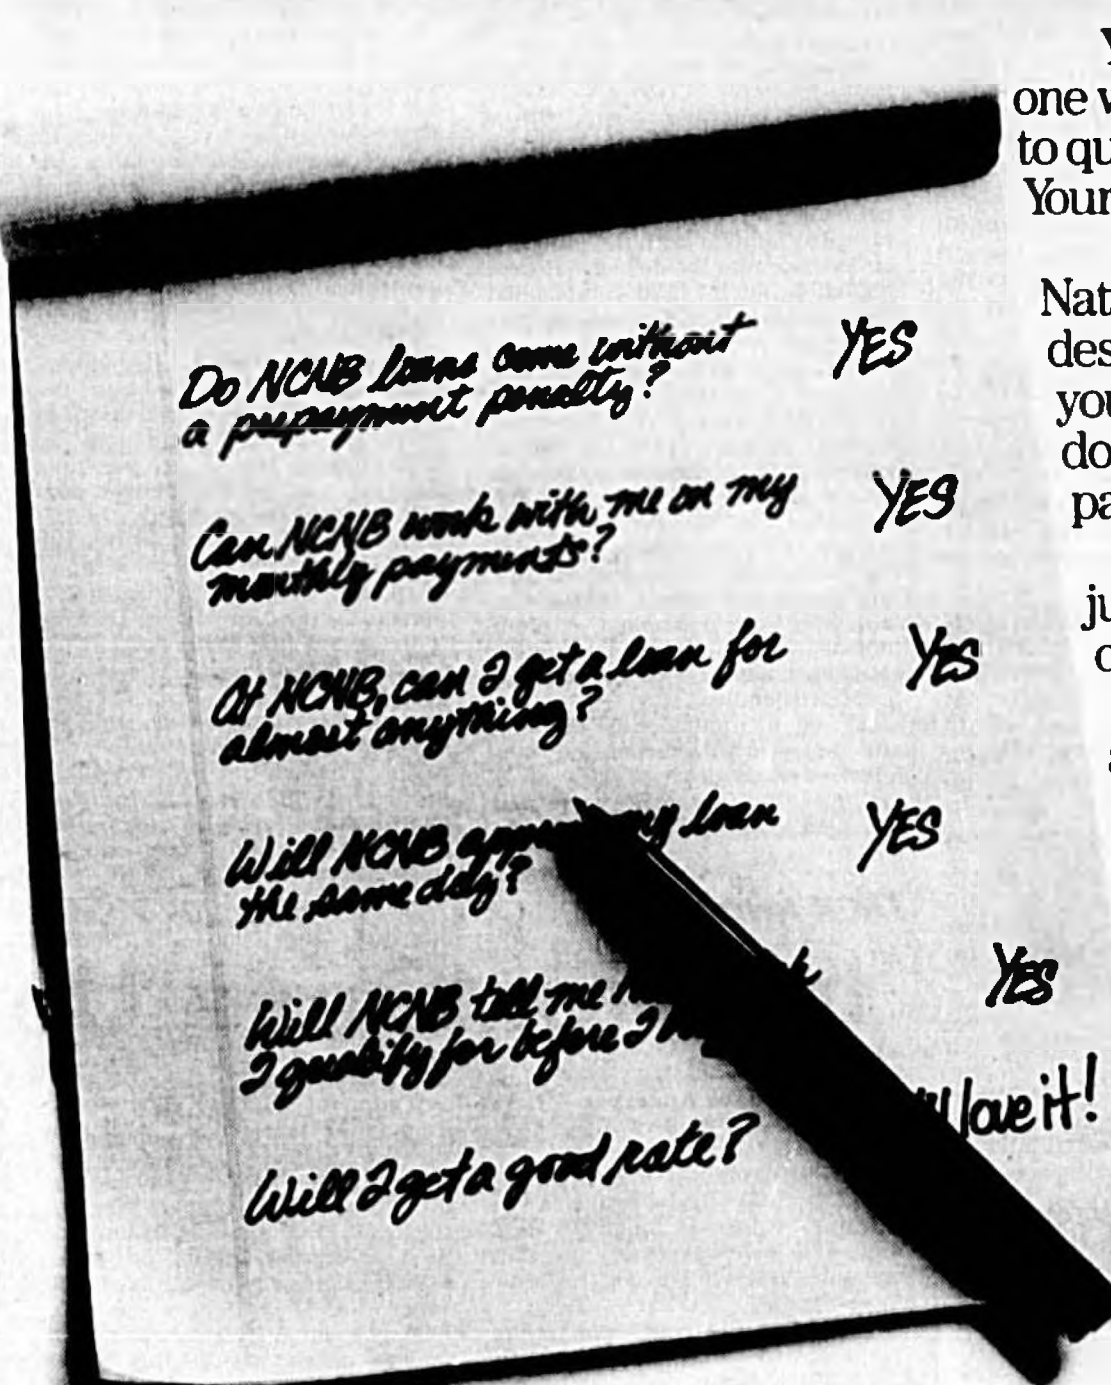 Do NCNB loans come without
a prepayment penalty?
YES
Can NCNB work with me on my
monthly payments?
YES
At NCNB, can I get a loan for
almost anything?
YES
Will NCNB my loan
the same day?
YES
Will NCNB tell me
I qualify for before I
YES
Will I get a good rate?
love it!
one
to
Your